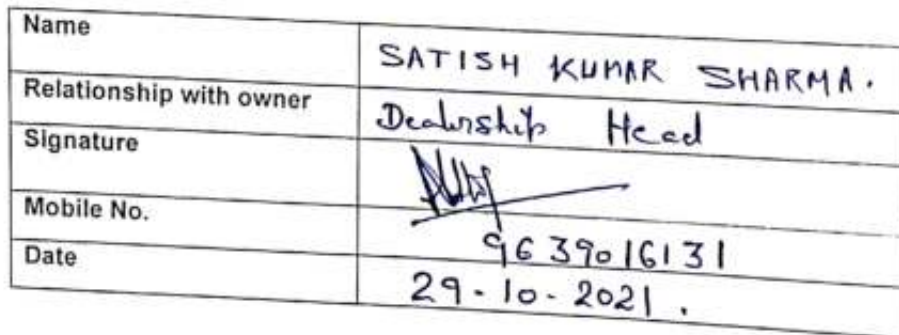 Name SATISH KUMAR SHARMA.
Relationship with owner Dealership Head
Signature
Mobile No. 9639016131
Date 29-10-2021.